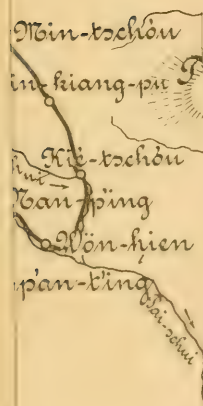 Min-tschóu
in-kiang-pu
T
Kië-tschóu
hui
Nan-p'ing
Wön-hien
p'an-t'ing
Pai-schui